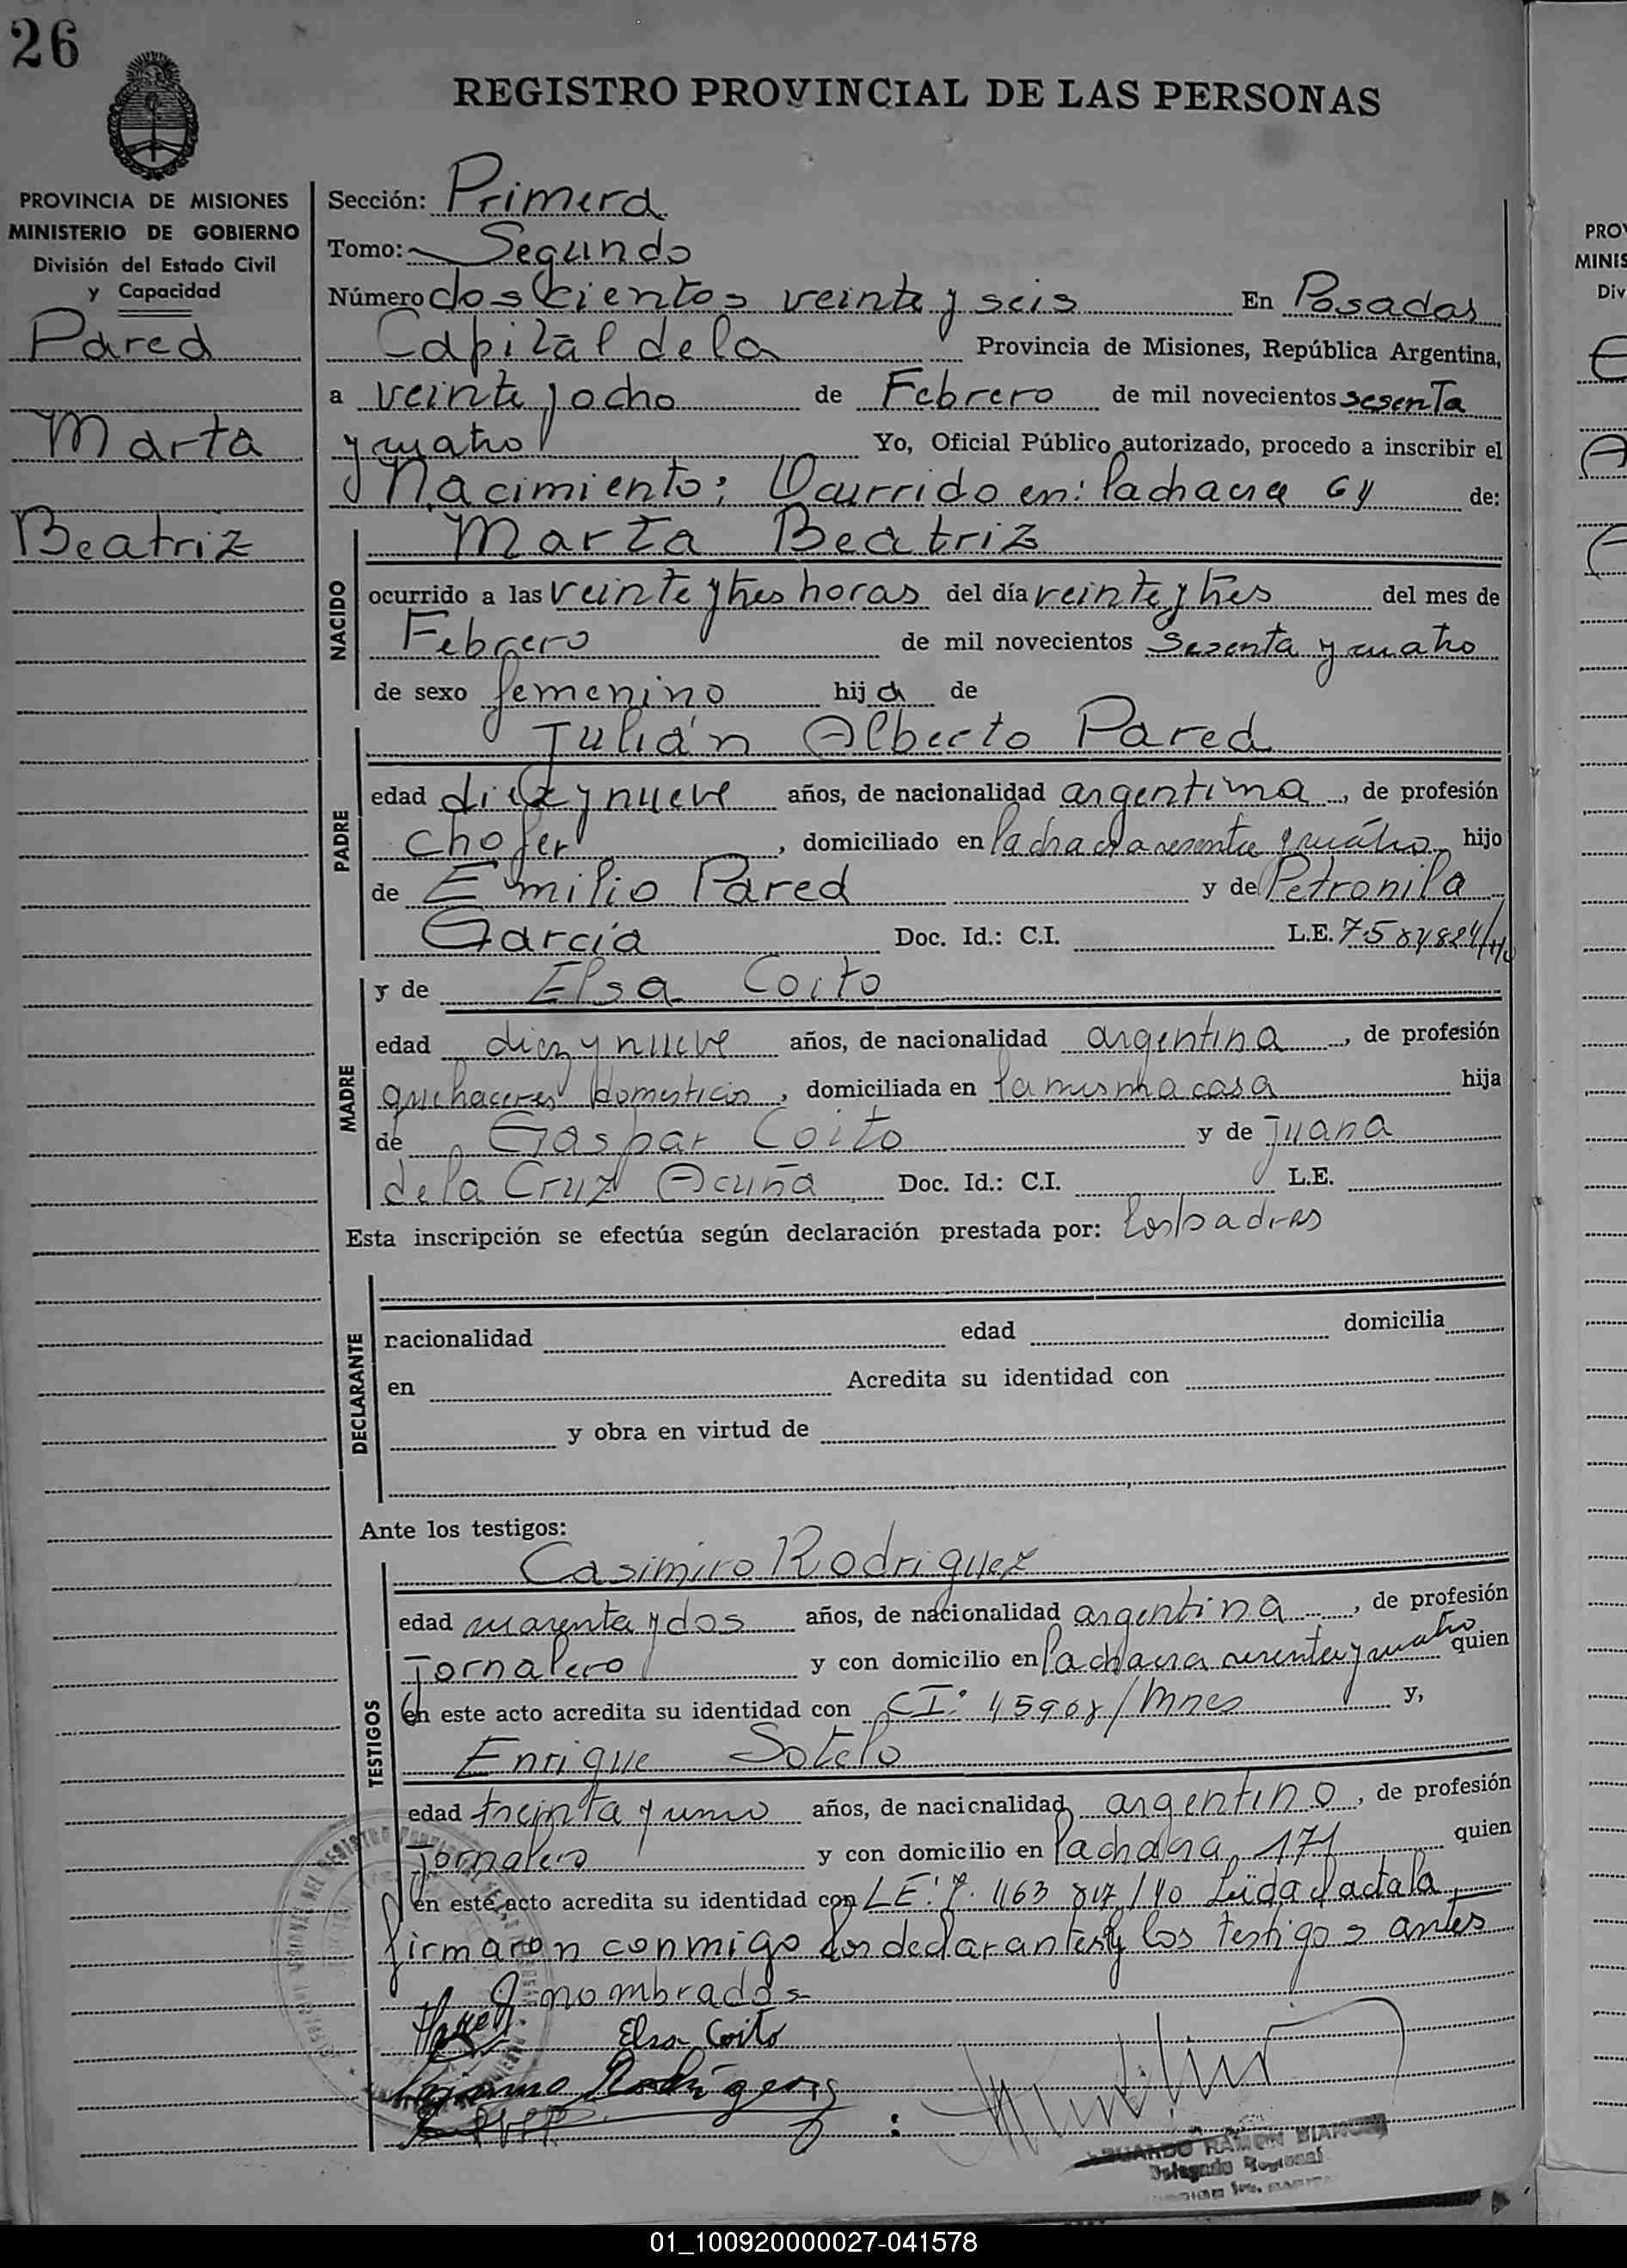 26
REGISTRO PROVINCIAL DE LAS PERSONAS
PROVINCIA DE MISIONES
MINISTERIO DE GOBIERNO
División del Estado Civil
y Capacidad
Pared
Marta
Beatriz
Sección: Primera
Tomo: Segundo
Número doscientos veinte y seis En Posadas
Capital de la Provincia de Misiones, República Argentina,
a veinte y ocho de Febrero de mil novecientos sesenta
y cuatro Yo, Oficial Público autorizado, procedo a inscribir el
Nacimiento: Ocurrido en: la chacra 64 de:
Marta Beatriz
NACIDO
ocurrido a las veinte y tres horas del día veinte y tres del mes de
Febrero de mil novecientos sesenta y cuatro
de sexo femenino hija de
Julián Alberto Pared
PADRE
edad diez y nueve años, de nacionalidad argentina, de profesión
chofer, domiciliado en la chacra sesenta y cuatro hijo
de Emilio Pared y de Petronila
García Doc. Id.: C.I. L.E.
y de Elsa Coito
MADRE
edad diez y nueve años, de nacionalidad argentina, de profesión
quehaceres domesticos, domiciliada en la misma casa hija
de Gaspar Coito y de Juana
de la Cruz Acuña Doc. Id.: C.I. L.E.
Esta inscripción se efectúa según declaración prestada por: los padres
DECLARANTE
nacionalidad edad domicilia
en Acredita su identidad con
y obra en virtud de
Ante los testigos:
Casimiro Rodriguez
TESTIGOS
edad cuarenta y dos años, de nacionalidad argentina, de profesión
Jornalero y con domicilio en la chacra sesenta y cuatro quien
en este acto acredita su identidad con CI: /Mnes y,
Enrique Sotelo
edad treinta y uno años, de nacionalidad argentino, de profesión
Jornalero y con domicilio en la chacra 171 quien
en este acto acredita su identidad con LE: Leída el acta la
firmaron conmigo los declarantes y los testigos antes
nombrados
Elsa Coito
EDUARDO RAMON
Delegado Regional
PRO
MINIS
Div
01_100920000027-041578